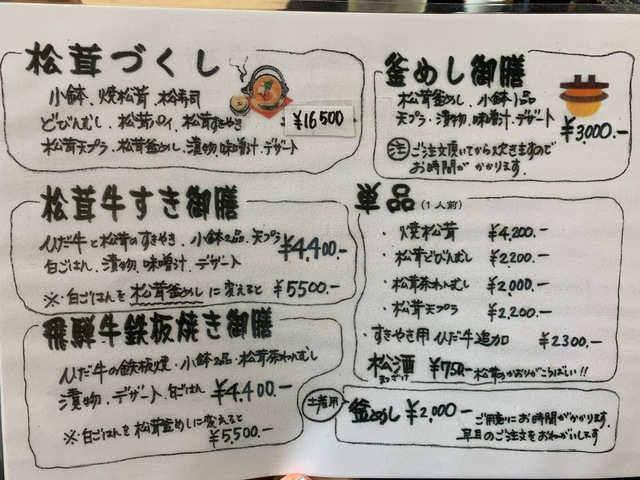 松茸づくし
小鉢、焼松茸、松寿司
どびんむし、松茸パイ、松茸すきやき
¥16500
松茸天プラ、松茸釜めし、漬物、味噌汁、デザート
松茸牛すき御膳
ひだ牛と松茸のすきやき、小鉢2品、天プラ
白ごはん、漬物、味噌汁、デザート
¥4,400.-
※白ごはんを松茸釜めしに変えると ¥5500.-
飛騨牛鉄板焼き御膳
ひだ牛の鉄板焼・小鉢2品・松茸茶わんむし
漬物、デザート、白ごはん ¥4,400.-
※白ごはんを松茸釜めしに変えると
¥5,500.-
釜めし御膳
松茸釜めし、小鉢1品
天プラ・漬物、味噌汁・デザート
¥3,000.-
注 ご注文頂いてから炊きますので
お時間がかかります.
単品(1人前)
・焼松茸 ¥4,200.-
・松茸どびんむし ¥2200.-
・松茸茶わんむし ¥2,000.-
・松茸天プラ ¥2,200.-
・すきやき用ひだ牛追加 ¥2300.-
松酒 ¥750.- 松茸のかおりがこうばしい!!
土産用
釜めし ¥2,000-
ご用意にお時間がかかります.
早目のご注文をおねがいします